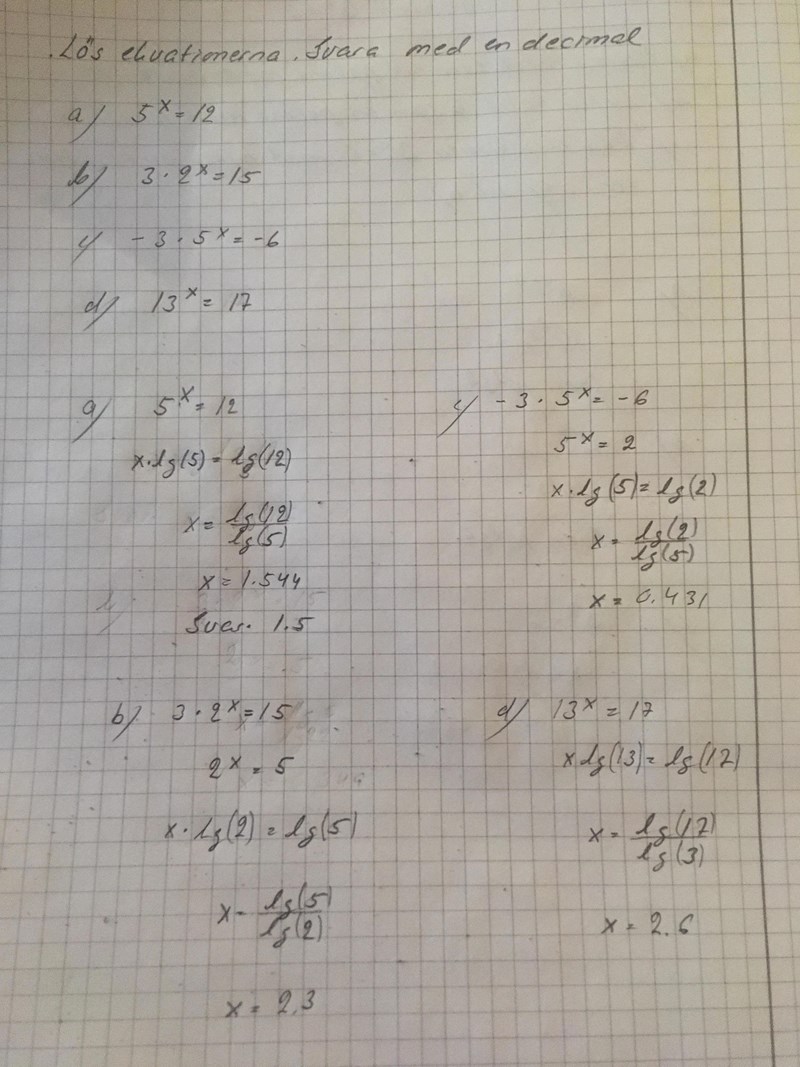 .Lös ekvationerna. Svara med en decimal
a) 5^x = 12
b) 3 · 2^x = 15
c) -3 · 5^x = -6
d) 13^x = 17
a) 5^x = 12
x·lg(5) = lg(12)
x = lg(12)/lg(5)
x = 1.544
Svar. 1.5
b) 3 · 2^x = 15
2^x = 5
x · lg(2) = lg(5)
x = lg(5)/lg(2)
x = 2.3
c) -3 · 5^x = -6
5^x = 2
x · lg(5) = lg(2)
x = lg(2)/lg(5)
x = 0.431
d) 13^x = 17
x lg(13) = lg(17)
x = lg(17)/lg(3)
x = 2.6